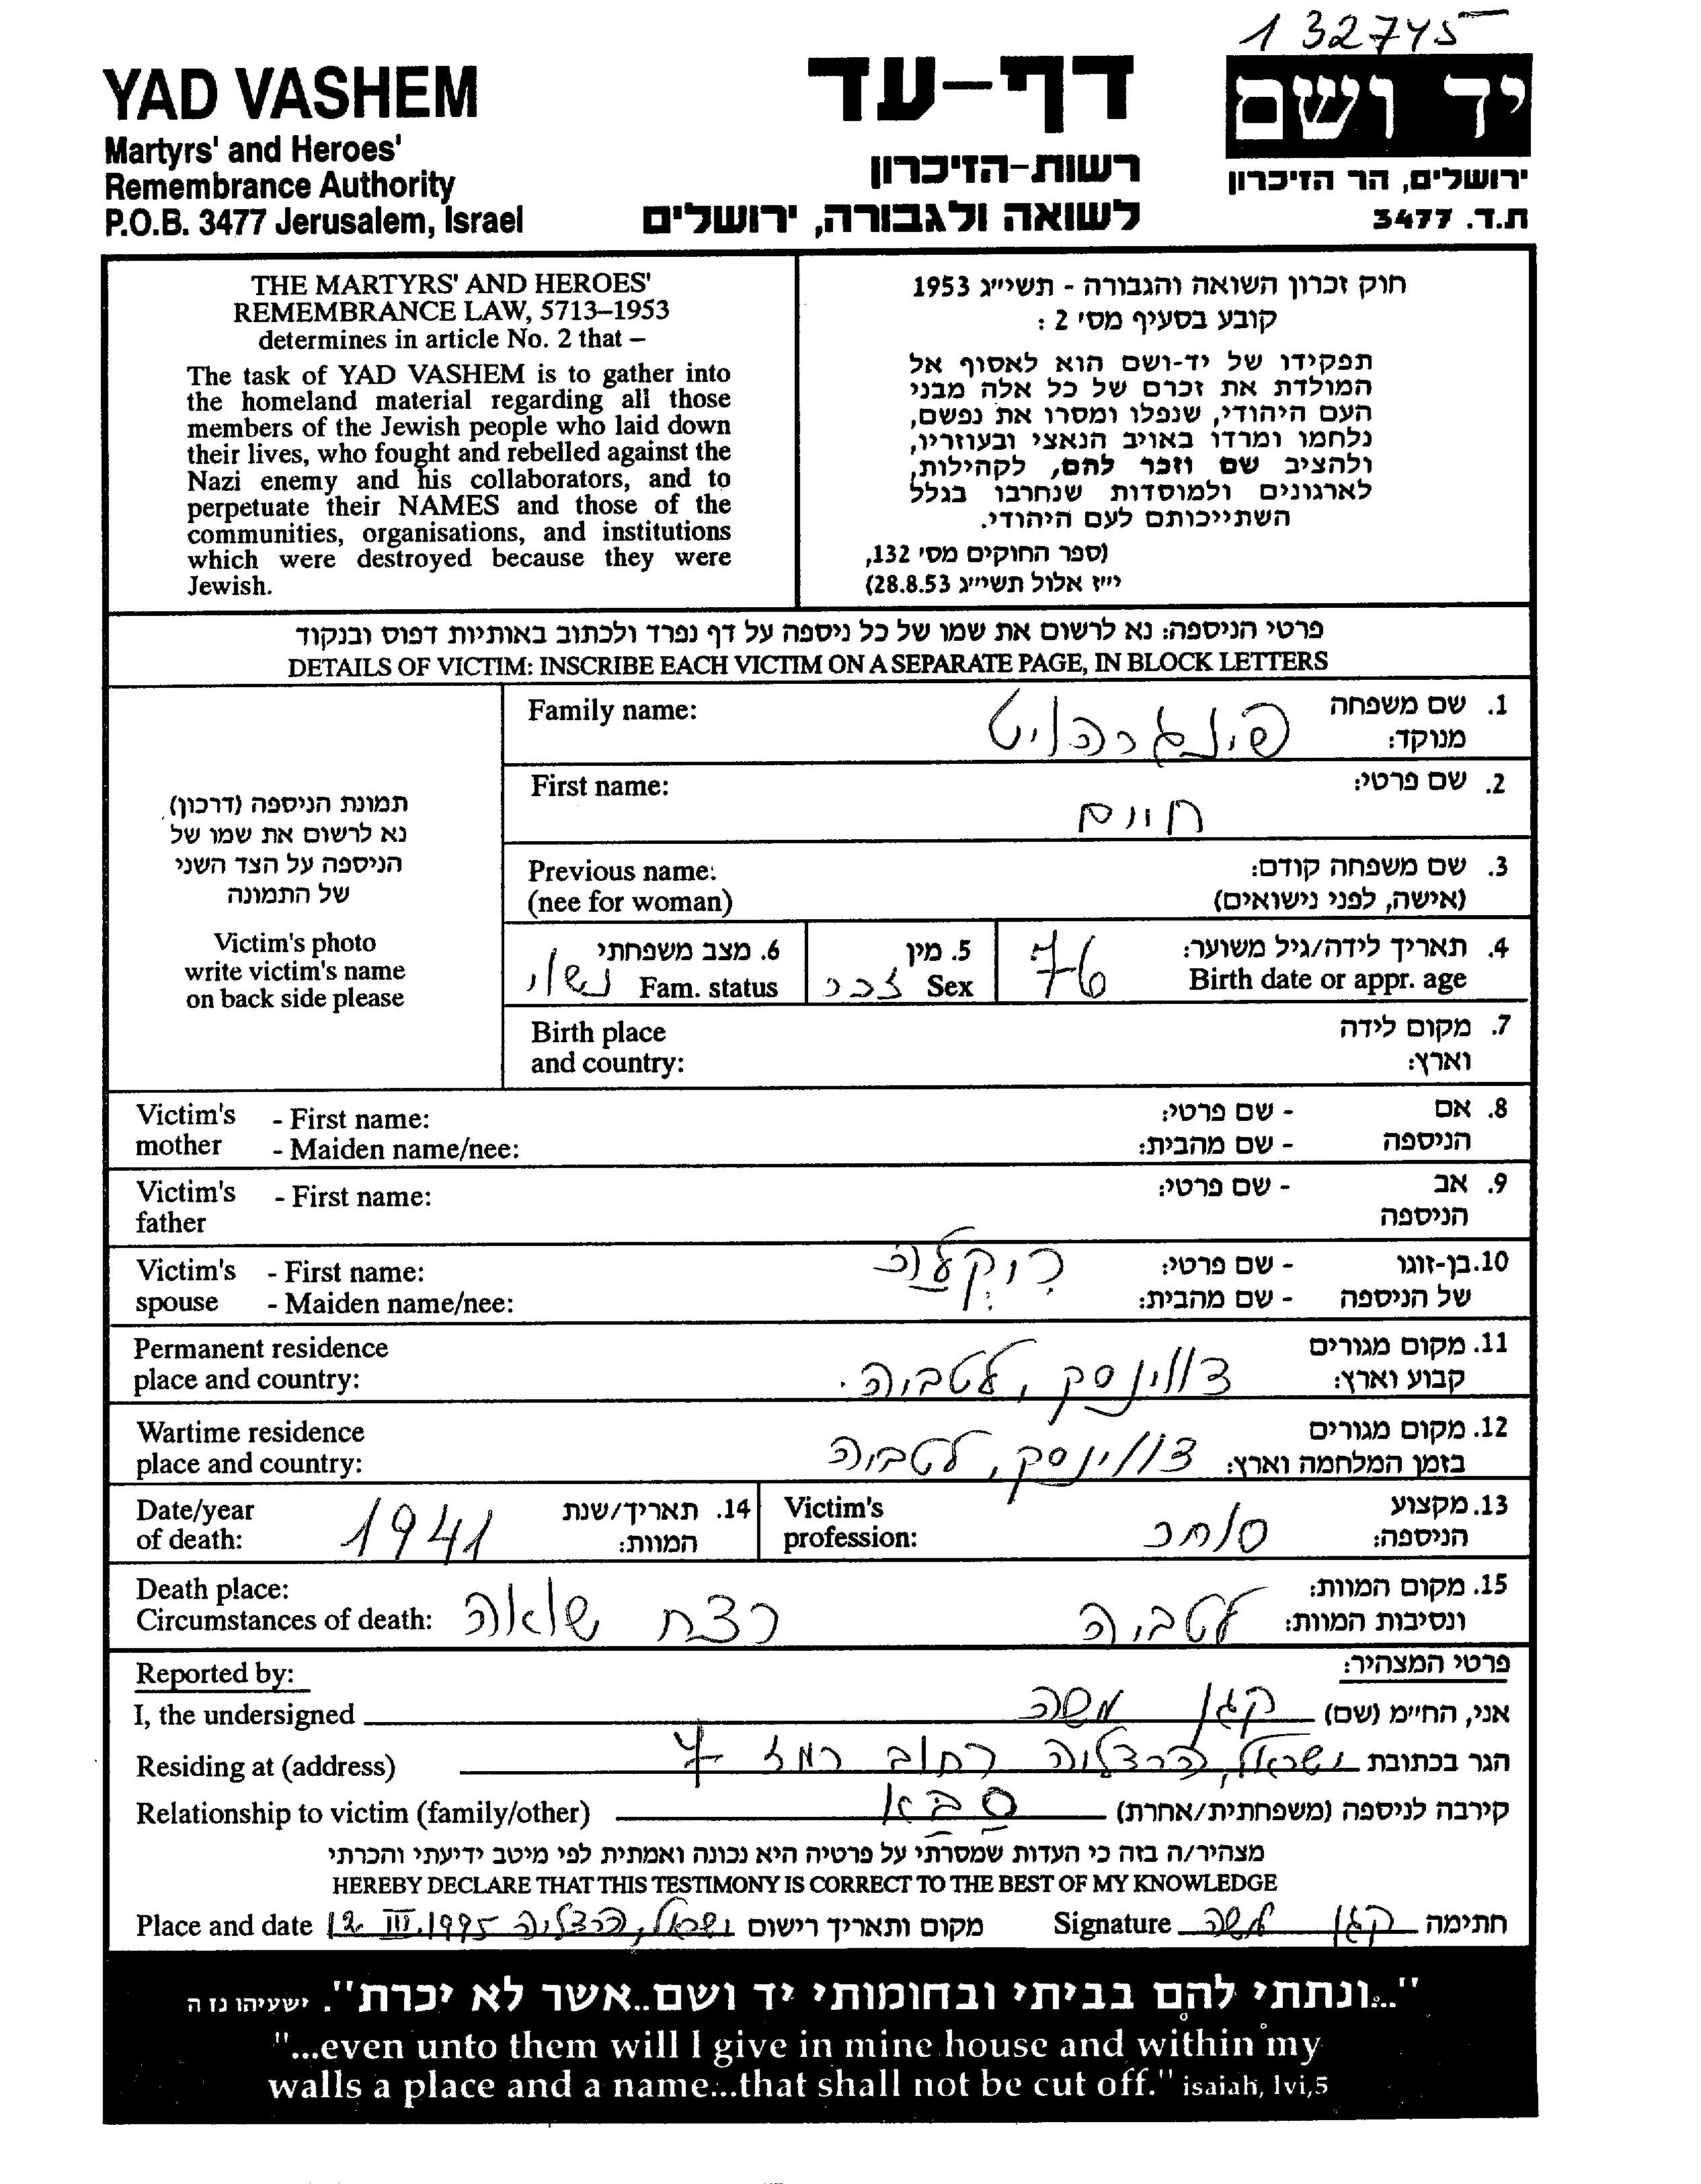 132745
YAD VASHEM
Martyrs' and Heroes'
Remembrance Authority
P.O.B. 3477 Jerusalem, Israel
דף-עד
רשות-הזיכרון
לשואה ולגבורה, ירושלים
יד ושם
ירושלים, הר הזיכרון
ת.ד. 3477
THE MARTYRS' AND HEROES'
REMEMBRANCE LAW, 5713–1953
determines in article No. 2 that –
The task of YAD VASHEM is to gather into
the homeland material regarding all those
members of the Jewish people who laid down
their lives, who fought and rebelled against the
Nazi enemy and his collaborators, and to
perpetuate their NAMES and those of the
communities, organisations, and institutions
which were destroyed because they were
Jewish.
חוק זכרון השואה והגבורה - תשי״ג 1953
קובע בסעיף מס' 2 :
תפקידו של יד-ושם הוא לאסוף אל
המולדת את זכרם של כל אלה מבני
העם היהודי, שנפלו ומסרו את נפשם,
נלחמו ומרדו באויב הנאצי ובעוזריו,
ולהציב שם וזכר להם, לקהילות,
לארגונים ולמוסדות שנחרבו בגלל
השתייכותם לעם היהודי.
(ספר החוקים מס' 132,
י״ז אלול תשי״ג 28.8.53)
פרטי הניספה: נא לרשום את שמו של כל ניספה על דף נפרד ולכתוב באותיות דפוס ובנקוד
DETAILS OF VICTIM: INSCRIBE EACH VICTIM ON A SEPARATE PAGE, IN BLOCK LETTERS
תמונת הניספה (דרכון)
נא לרשום את שמו של
הניספה על הצד השני
של התמונה
Victim's photo
write victim's name
on back side please
1. שם משפחה
מנוקד:
Family name:
2. שם פרטי:
First name:
חיים
3. שם משפחה קודם:
(אישה, לפני נישואים)
Previous name:
(nee for woman)
4. תאריך לידה/גיל משוער:
Birth date or appr. age
76
5. מין
Sex זכר
6. מצב משפחתי
Fam. status נשוי
7. מקום לידה
וארץ:
Birth place
and country:
8. אם - שם פרטי:
הניספה - שם מהבית:
Victim's - First name:
mother - Maiden name/nee:
9. אב - שם פרטי:
הניספה
Victim's - First name:
father
10. בן-זוגו - שם פרטי:
של הניספה - שם מהבית:
Victim's - First name:
spouse - Maiden name/nee:
11. מקום מגורים
קבוע וארץ:
דווינסק, לטביה.
Permanent residence
place and country:
12. מקום מגורים
בזמן המלחמה וארץ:
דווינסק, לטביה
Wartime residence
place and country:
13. מקצוע
הניספה:
סוחר
Victim's
profession:
14. תאריך/שנת
המוות:
1941
Date/year
of death:
15. מקום המוות:
ונסיבות המוות:
לטביה רצח שואה
Death place:
Circumstances of death:
פרטי המצהיר:
Reported by:
אני, החי״מ (שם) קגן משה
I, the undersigned
הגר בכתובת ישראל, הרצליה רחוב רמז 7
Residing at (address)
קירבה לניספה (משפחתית/אחרת) סבא
Relationship to victim (family/other)
מצהיר/ה בזה כי העדות שמסרתי על פרטיה היא נכונה ואמתית לפי מיטב ידיעתי והכרתי
HEREBY DECLARE THAT THIS TESTIMONY IS CORRECT TO THE BEST OF MY KNOWLEDGE
חתימה קגן משה Signature
מקום ותאריך רישום ישראל, הרצליה 12.III.1995 Place and date
"...ונתתי להם בביתי ובחומותי יד ושם..אשר לא יכרת". ישעיהו נז ה
"...even unto them will I give in mine house and within my
walls a place and a name...that shall not be cut off." isaiah, lvi,5